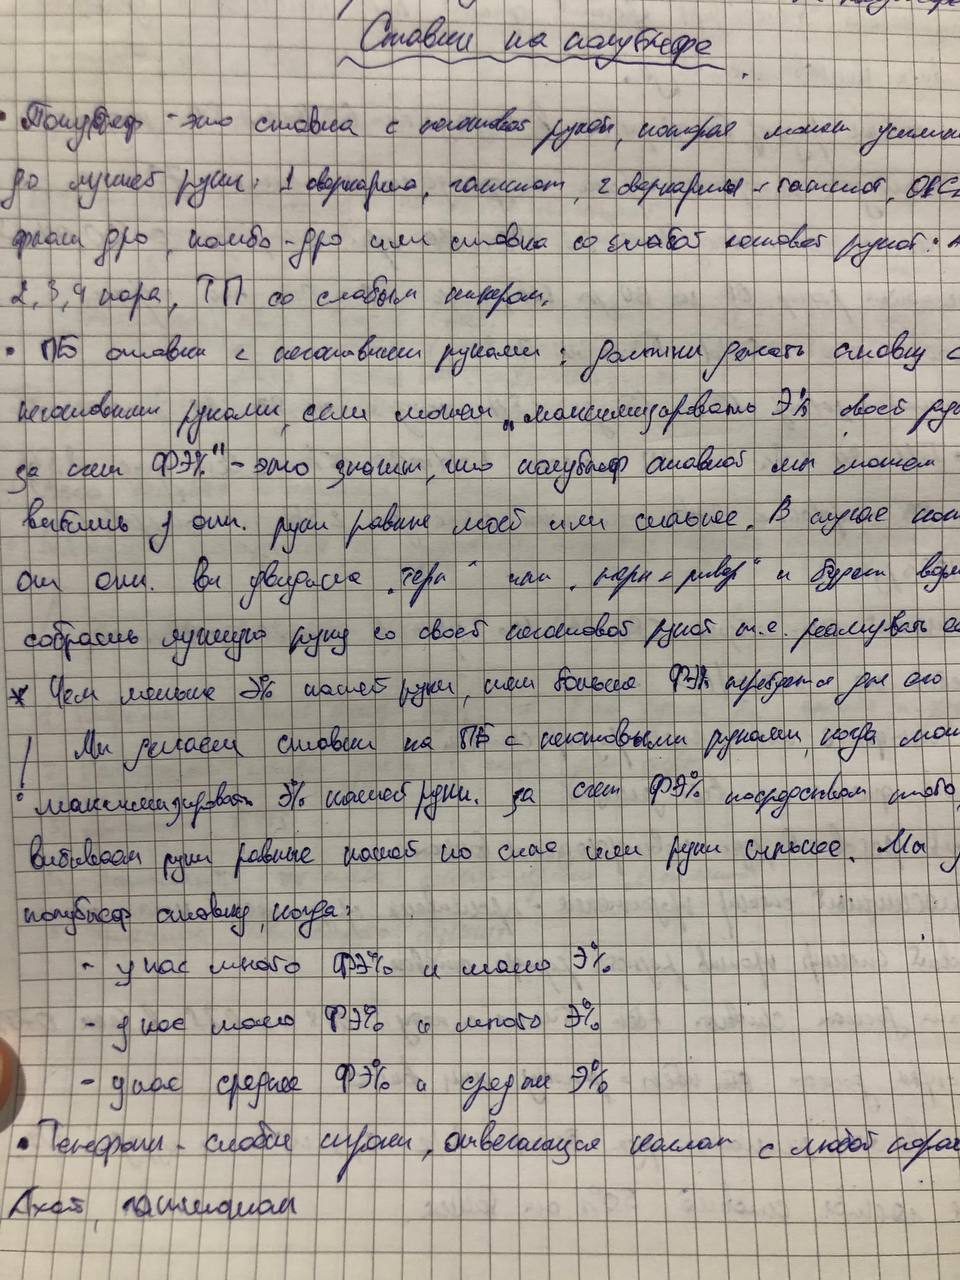 Ставки на полублефе
• Полублеф - это ставка с неготовой рукой, которая может усилит
до лучшей руки: 1 оверкарта, гатшот, 2 оверкарты + гатшот, ОЕСД
флеш дро, комбо-дро или ставка со слабой готовой рукой:
2, 3, 4 пара, ТП со слабым кикером.
• ПБ ставки с неготовыми руками: должны делать ставку с
неготовыми руками, если можем „максимизировать Э% своей рук
за счет ФЭ%" - это значит, что полублеф ставкой мы можем
выбить у опп. руки равные моей или сильнее. В случае кол
от опп. Вы увидите „терн" или „терн + ривер" и будет возм
собрать лучшую руку со своей неготовой рукой т.е. реализовать
* Чем меньше Э% нашей руки, тем больше ФЭ% требуется для его
! Мы делаем ставки на ПБ с неготовыми руками, когда мож
максимизировать Э% нашей руки за счет ФЭ% посредством того,
выбиваем руки равные нашей по силе или руки сильнее. Мы
полублеф ставку, когда:
- у нас много ФЭ% и мало Э%
- у нас мало ФЭ% и много Э%
- у нас среднее ФЭ% и средне Э%
• Телефоны - слабые игроки, отвечающие коллом с любой парой
Ахай, гатшотом